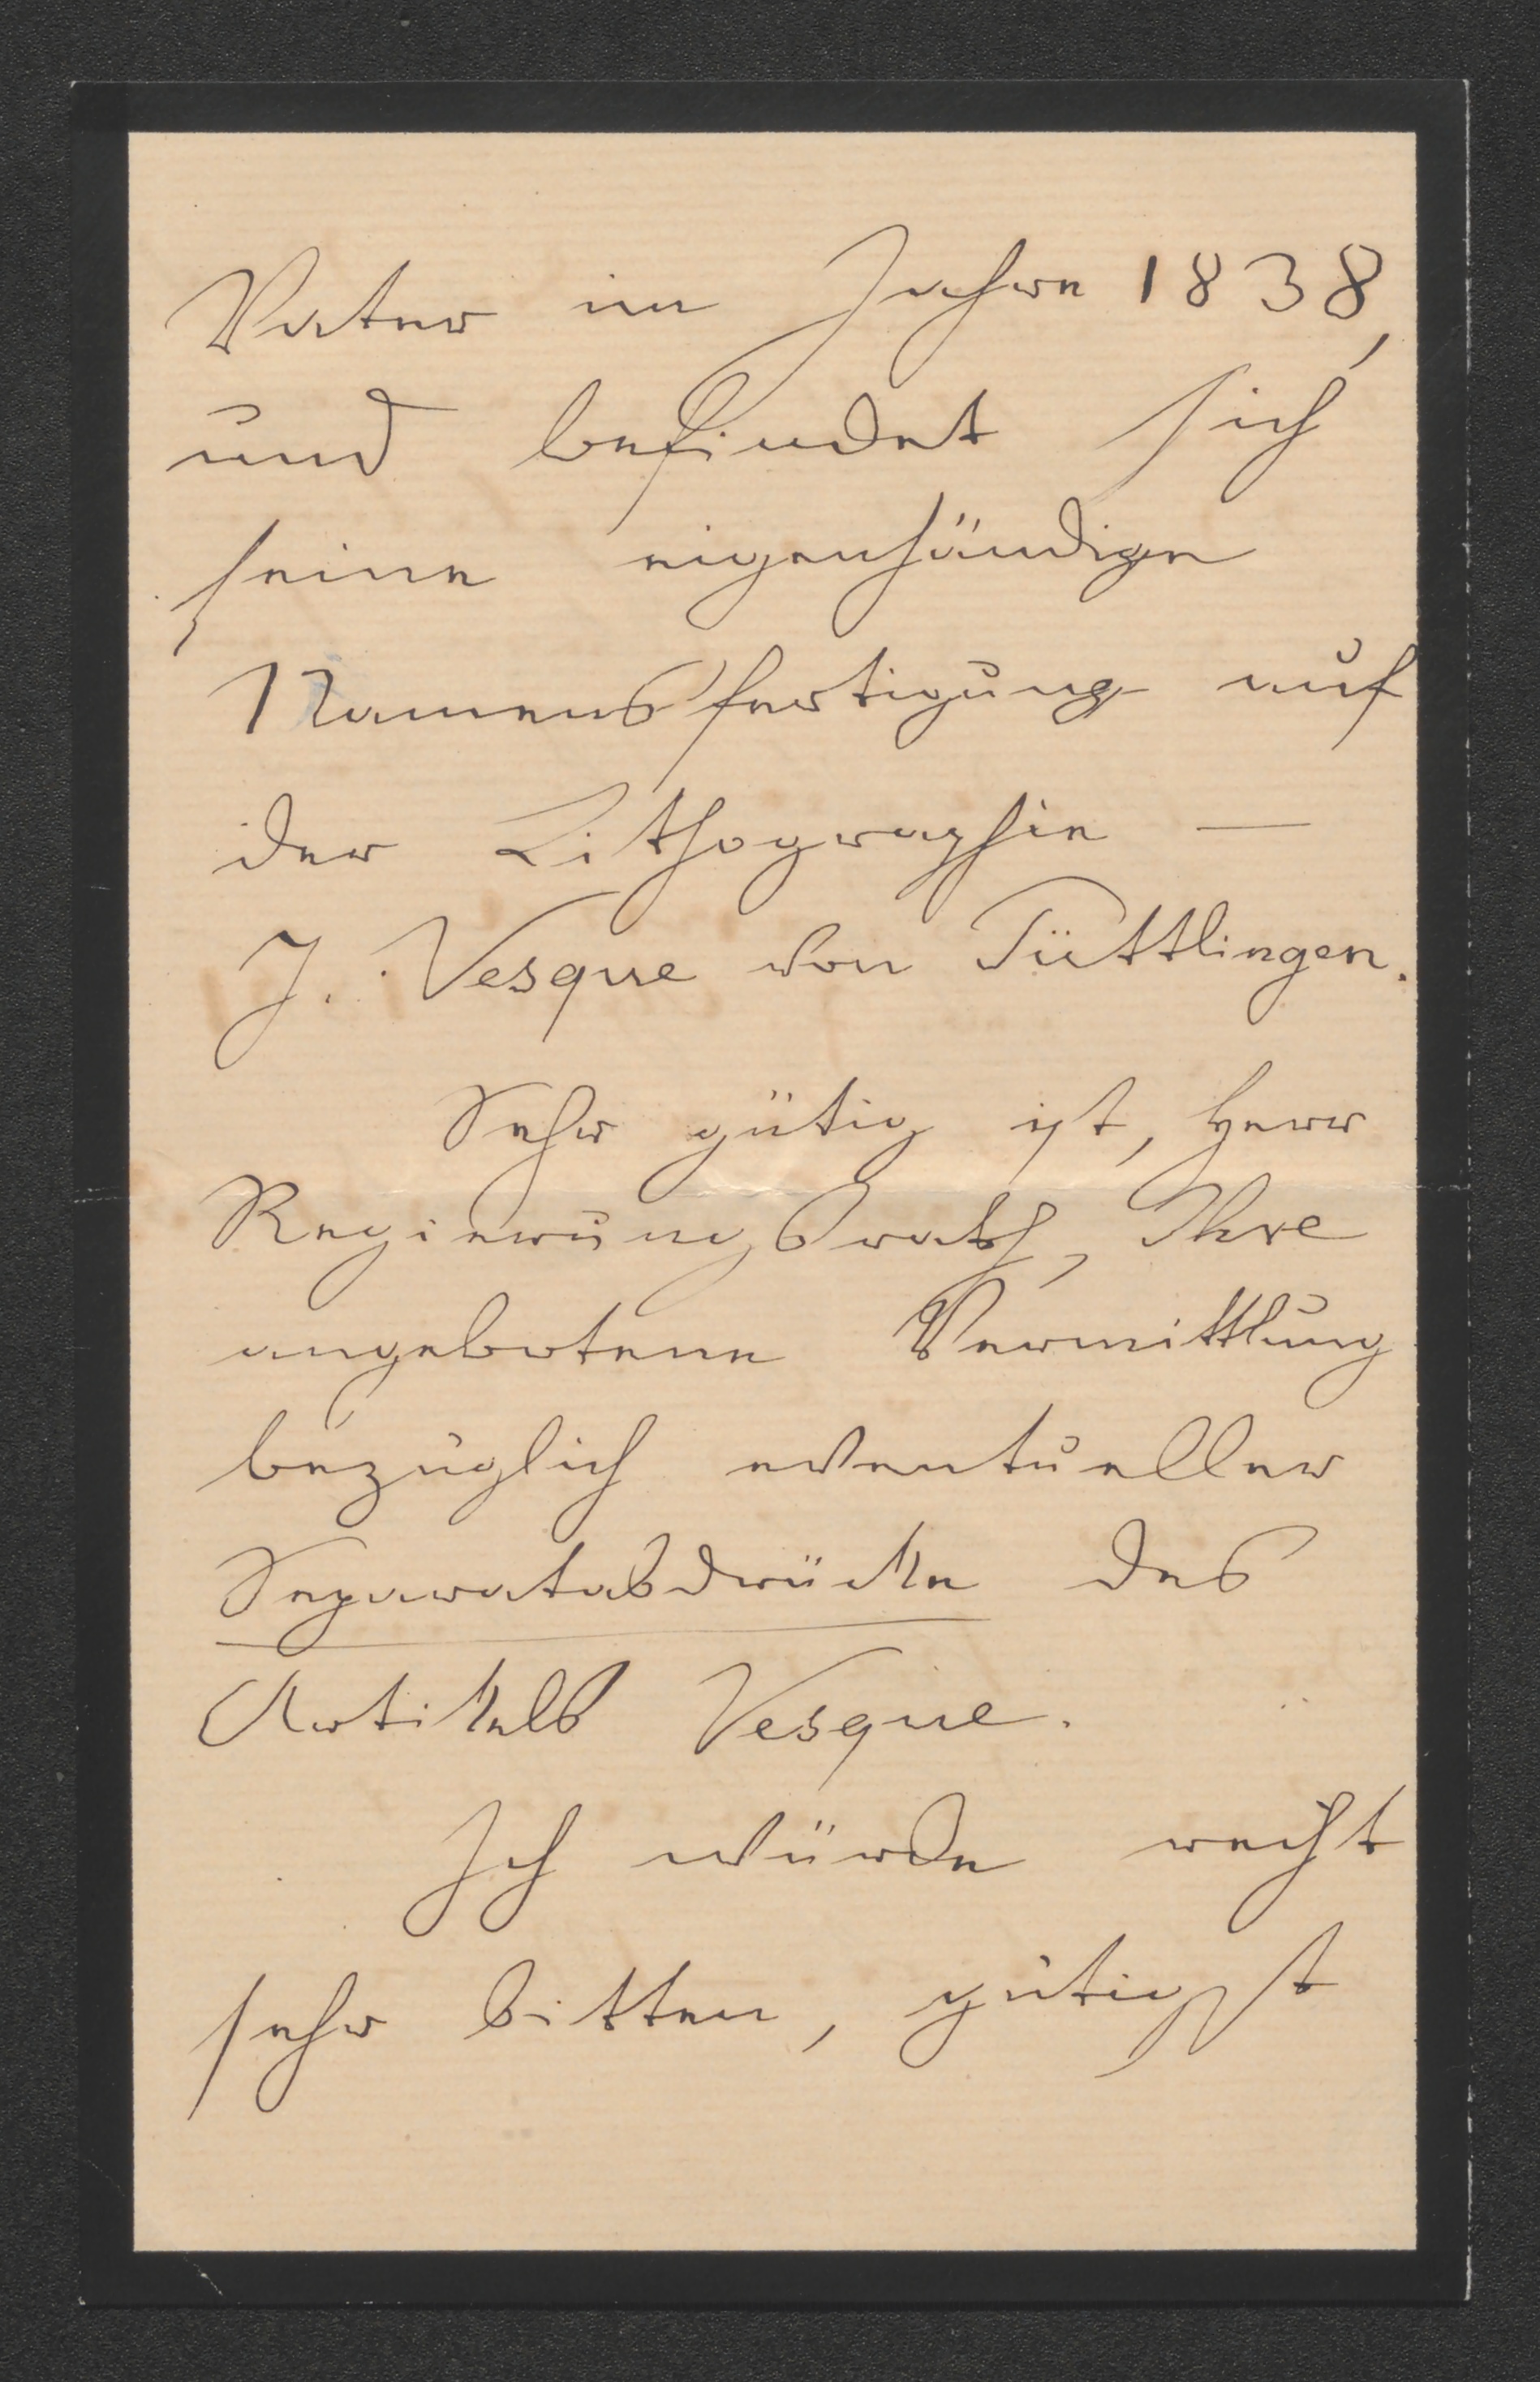 Vater im Jahre 1838,
und befindet sich
seine eigenhändige
Namensfertigung auf
der Lithographie —
J. Vesque von Püttlingen.
Sehr gütig ist, Herr
Regierungsrath, Ihre
angebotene Vermittlung
bezüglich eventueller
Separatabdrücke des
Artikels Vesque.
Ich würde recht
sehr bitten, gütigst